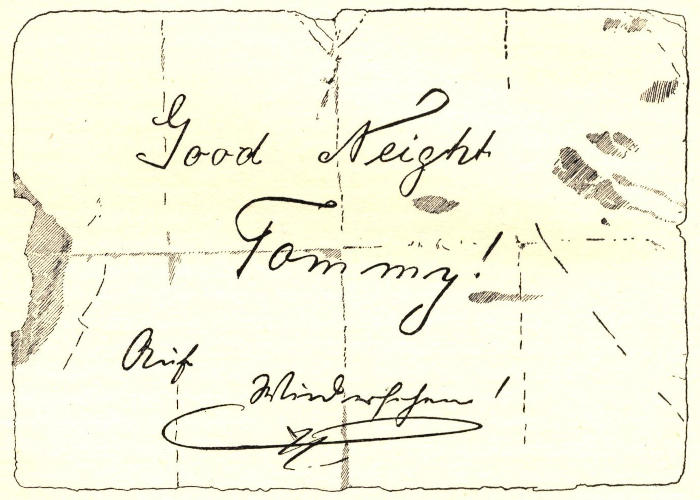 Good Neight
Tommy!
Auf
Wiedersehen!